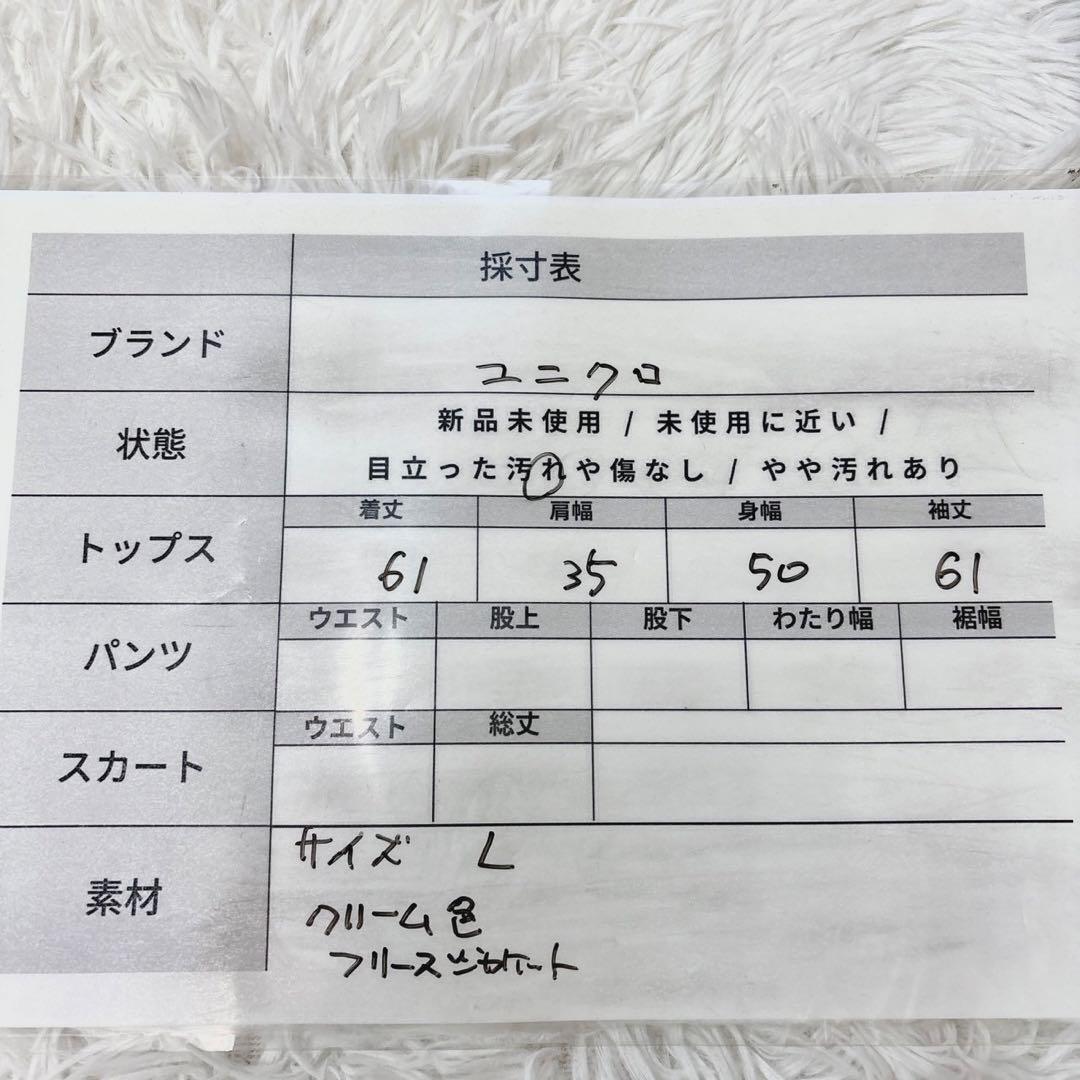 採寸表
ブランド
ユニクロ
状態
新品未使用 / 未使用に近い /
目立った汚れや傷なし / やや汚れあり
トップス
着丈 肩幅 身幅 袖丈
61 35 50 61
パンツ
ウエスト 股上 股下 わたり幅 裾幅
スカート
ウエスト 総丈
素材
サイズ L
クリーム色
フリースジャケット